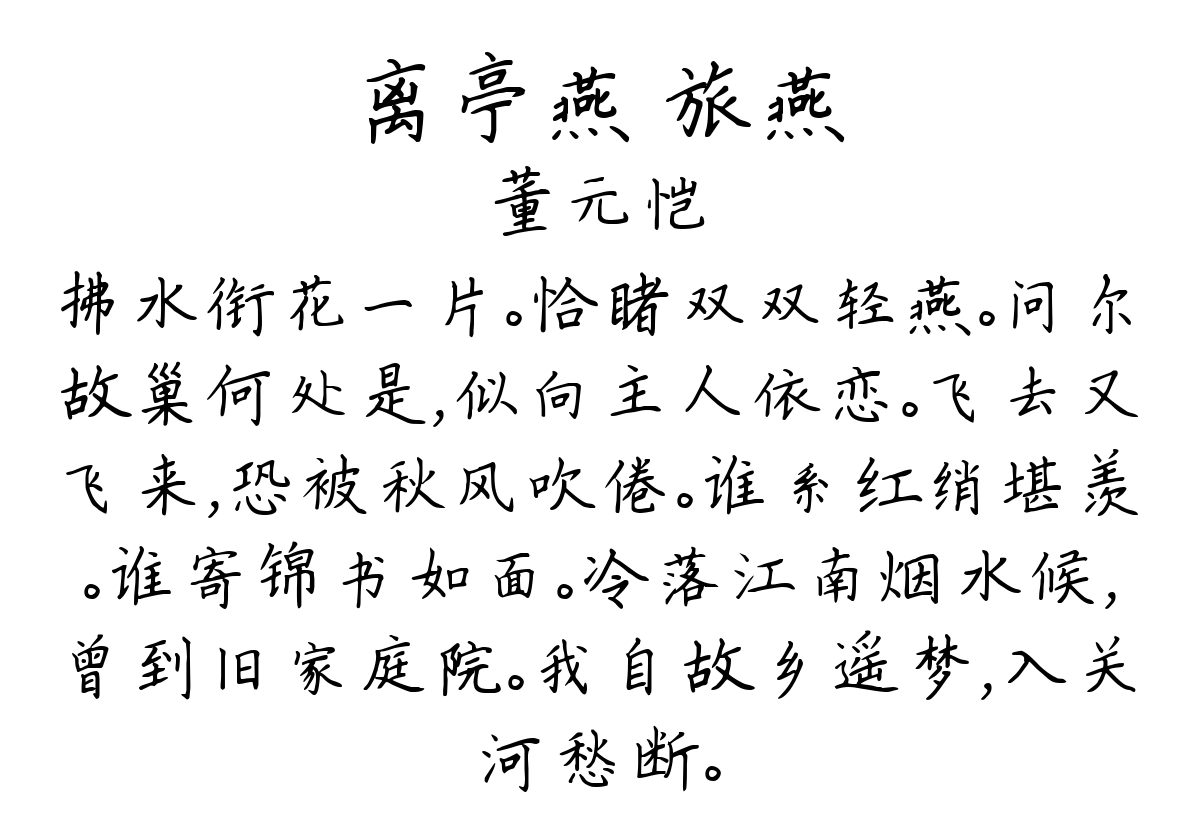 离亭燕 旅燕
董元恺
拂水衔花一片。恰睹双双轻燕。问尔
故巢何处是,似向主人依恋。飞去又
飞来,恐被秋风吹倦。谁系红绡堪羡
。谁寄锦书如面。冷落江南烟水候,
曾到旧家庭院。我自故乡遥梦,入关
河愁断。